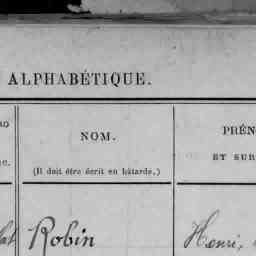 ALPHABÉTIQUE.
NOM.
(Il doit être écrit en bâtarde.)
PRÉN
ET SUR
Robin
Henri,